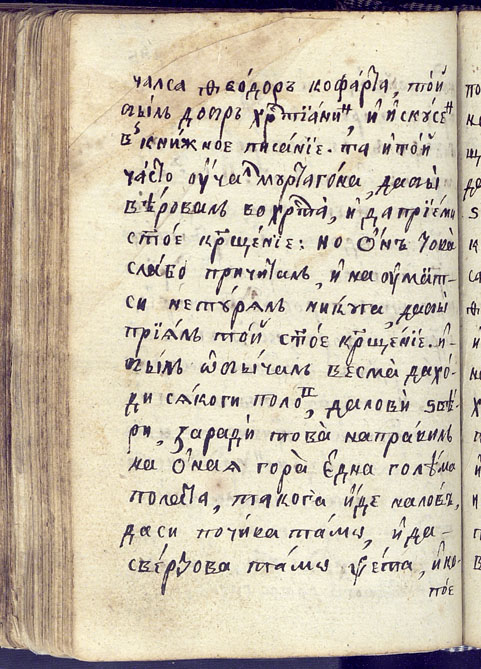 чалса ѳео́доръ кофа́рта, то́й
бы́лъ добръ хрⷭ҇тїани́нъ, и҆ и҆скꙋ́сенъ
въ кни́жное писа́нїе. та и҆ то́й
ча́сто оу҆ча́лъ мꙋртаго́на, дабы̀
вѣ́ровалъ во хрⷭ҇та̀, и҆ да прїе́ми
ст҃о́е кр҃ще́нїе: но о҆́нъ това̀
сла́бо причи́талъ, и҆ на оу҆́матъ-
си не тꙋ́рялъ никꙋга, дабы̀
прїѧ́лъ то́й ст҃о́е кр҃ще́нїе. и҆-
бы́лъ ѡ҆бы́чалъ весма̀ да хо́-
ди сѧ́коги по ло́въ, да ловѝ ѕвѣ́-
ри, зарадѝ това̀ напра́вилъ
на о҆́ная гора̀ е҆дна̀ голѣ́ма
пола́та, та кога̀ и҆́де на ло́въ,
да си почи́ва та́мѡ, и҆ да-
све́рꙋва та́мѡ ѱе́та, и҆ ко-
пое